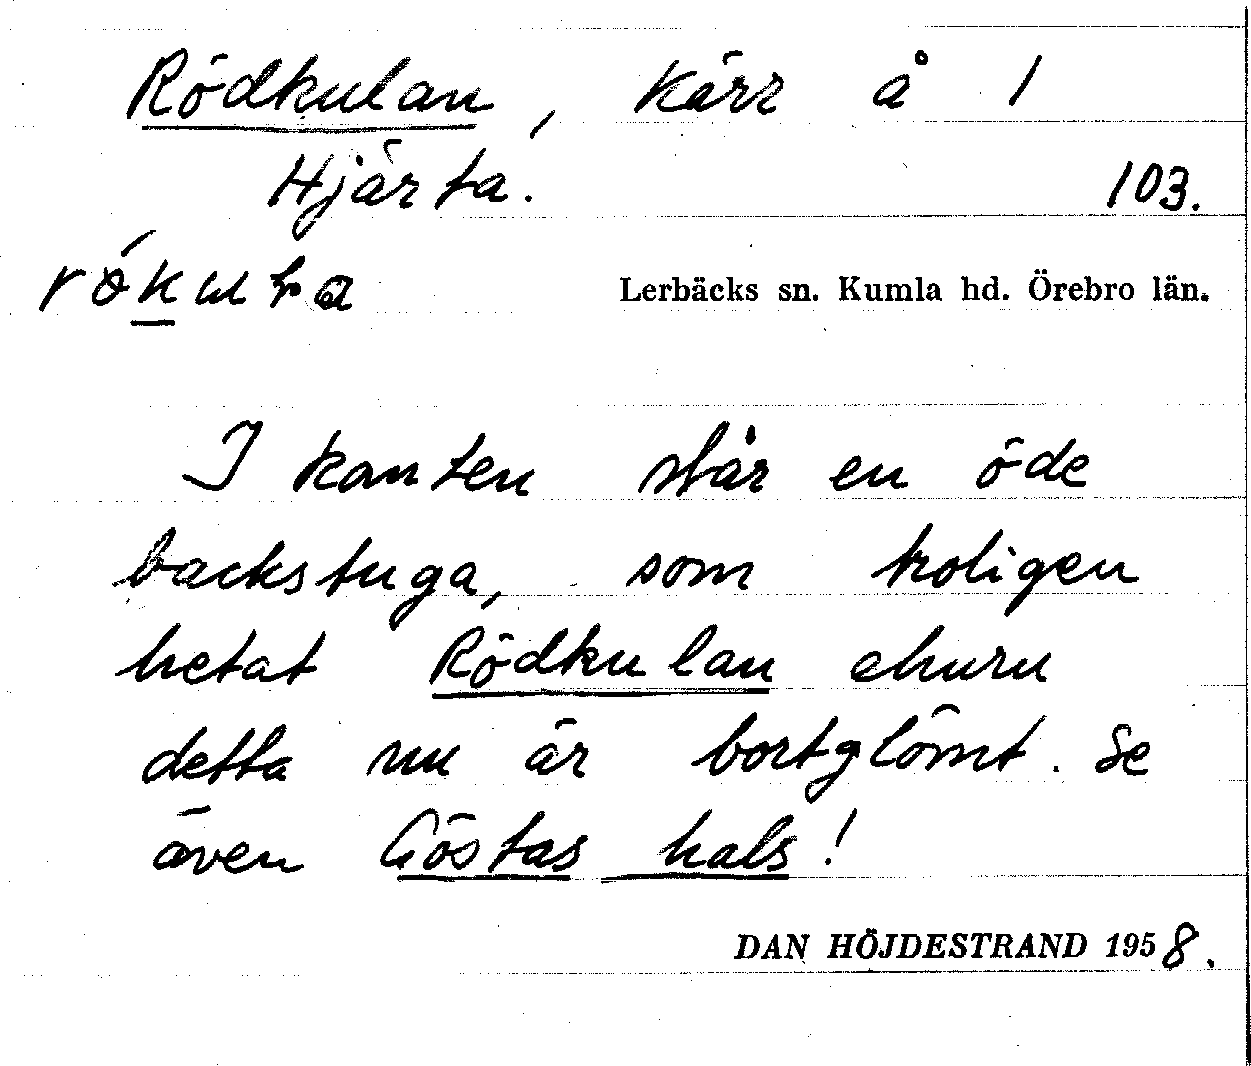 Rödkulan, Kärr å 1
Hjärta. 103.
Lerbäcks sn. Kumla hd. Örebro län.
I kanten står en öde
backstuga, som troligen
hetat Rödkulan ehuru
detta nu är bortglömt. Se
även Göstas hals!
DAN HÖJDESTRAND 1958.